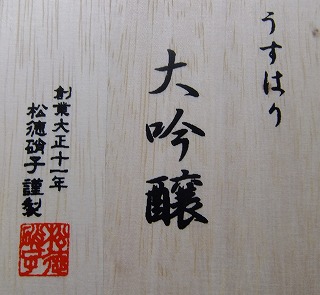 うすはり
大吟醸
創業大正十一年
松徳硝子謹製
松徳硝子